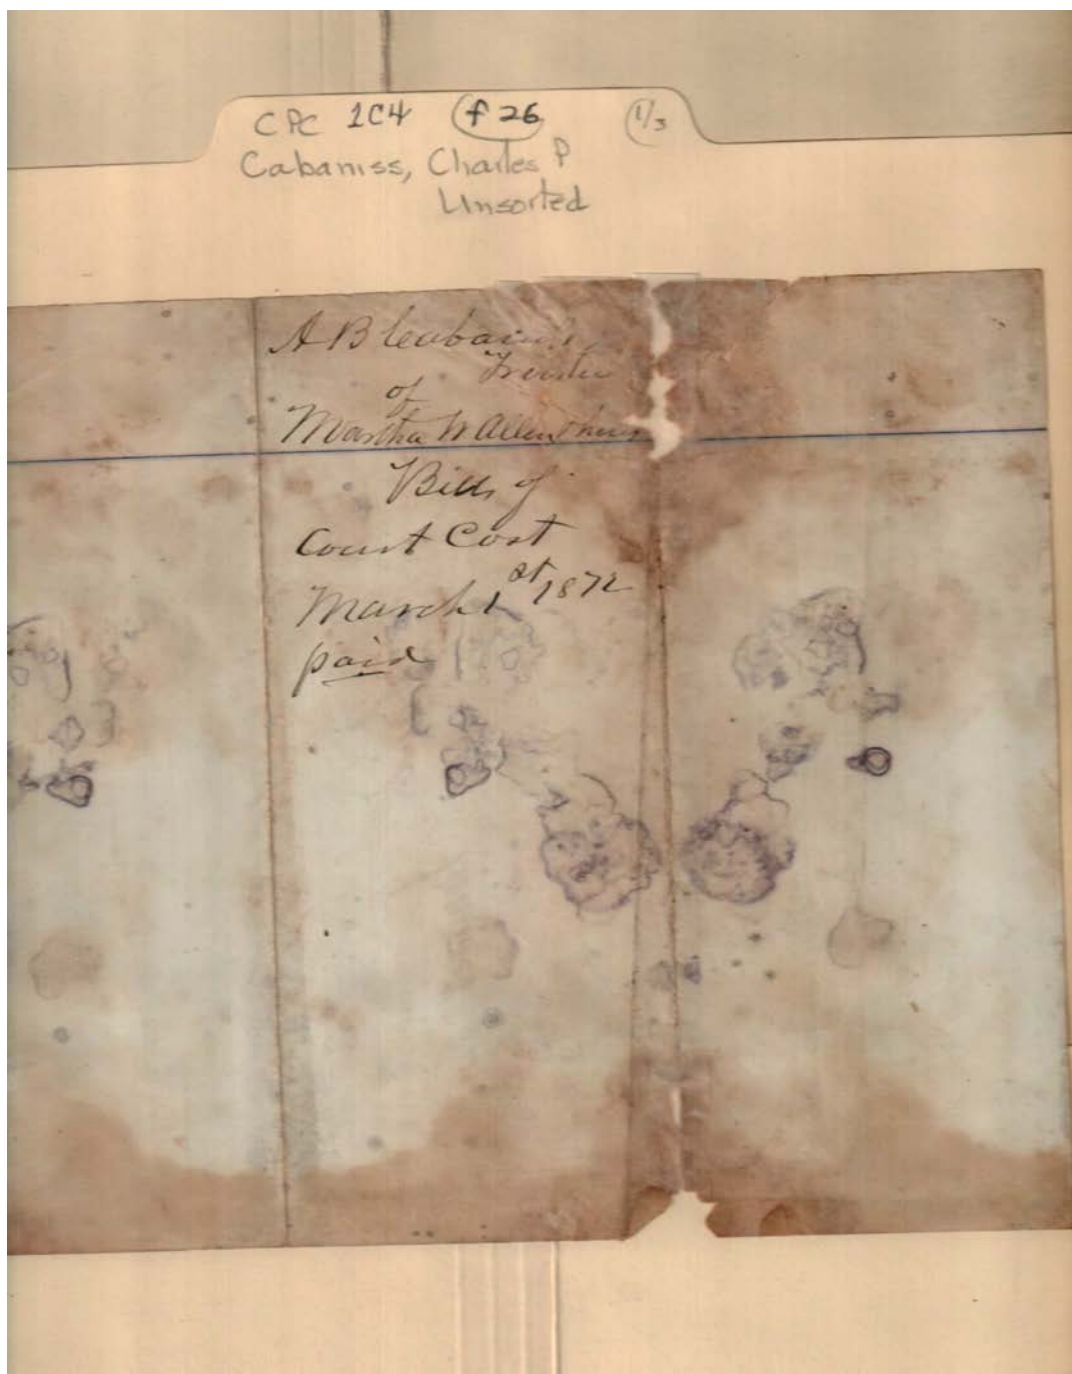 CPC 1C4 f 26 1/3
Cabaniss, Charles P
Unsorted
A B Cabaniss
Trustee
of
Martha W Allen
Bill of
Court Cost
March 1st 1872
paid